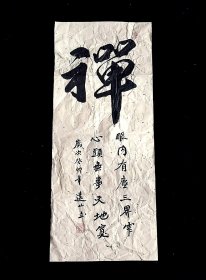 禪
眼内有塵三界窄
心頭無事天地寬
歲次癸卯年